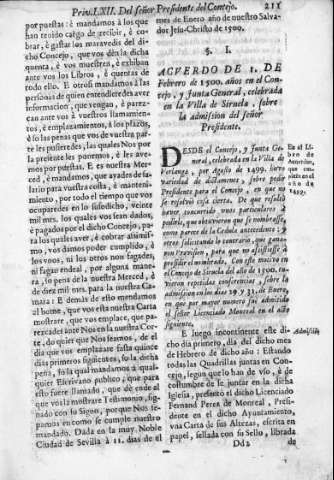 Priv. LXII. Del señor Presidente del Concejo. 211
por puestas: è mandamos à los que
han tenido cargo de recibir, è co-
brar, è gastar los maravedis del di-
cho Concejo, que vos dèn la dicha
quenta, è vos muestren las cartas
por vos dadas. E de las cuentas de
è de quien entendieredes aver
informacion, que vengan, è parez-
can ante vos à vuestros llamamien-
tos, è emplazamientos, à los plazos,
è so las penas que vos de vuestra par-
te les pusieredes, las quales Nos por
la presente les ponemos, è les ave-
mos por puestas. E es nuestra Mer-
ced, que ayades, è mantenimien-
to, por todo el tiempo que vos
ocuparedes en lo susodicho, veinte
mil mrs. los quales vos sean dados,
è pagados por el dicho Concejo, pa-
ra los quales aver è cobrar asimis-
mo, vos damos poder cumplido, è
los unos, ni los otros non fagades,
ni fagan endeal, por alguna mane-
ra, so pena de la nuestra Merced, è
de diez mil mrs. para la nuestra Ca-
mara: E demàs de esto mandamos
al home, que vos esta nuestra Carta
mostrare, que vos emplace, que pa-
rezcades ante Nos en la nuestra Cor-
te, do quier que Nos seamos, de el
dia que vos emplazare fasta quince
dias primeros siguientes, so la dicha
pena, so la qual mandamos à qual-
quier Escrivano publico, que para
esto fuere llamado, que dè ende al
que vos la mostrare Testimonio, sig-
nado con su Signo, por que Nos se-
pamos en como se cumple nuestro
mandado. Dada en la muy Noble
Ciudad de Sevilla à 11. dias de el
mes de Enero año de nuestro Salva-
dor Jesu-Christo de 1500.
§. I.
ACUERDO DE 1. DE
Febrero de 1500. años en el Con-
cejo, y Junta General, celebrada
en la Villa de Siruela, sobre
la admision del señor
Presidente.
DESDE el Concejo, y Junta Ge-
neral, celebrada en la Villa de
Berlanga, por Agosto de 1499. huvo
variedad de dictamenes, sobre pedir
Presidente para el Concejo, en que no
se resolviò cosa cierta. De que resultò
haver concurrido unos particulares à
pedirlo, que obtuvieron que se nombrasse,
como parece de la Cedula antecedente: y
otros solicitando lo contrario, que ganaron
Provision, para que no assistiesse
presidir al nombrado. Con este motivo en el
Concejo de Siruela del año de 1500. tu-
vieron reputadas conferencias, sobre la
admision en los dias 29. y 31. de Enero,
en que por mayor numero fuè admitido
el señor Licenciado Monreal en el dia
siguiente.
E luego incontinente este di-
cho dia primero, dia del dicho mes
de Hebrero de dicho año: Estando
todas las Quadrillas juntas en Con-
cejo, segun que lo han de uso, è de
costumbre de se juntar en la dicha
Iglesia, presento el dicho Licenciado
Fernand Perez de Monreal, Presi-
dente en el dicho Ayuntamiento,
una Carta de sus Altezas, escrita en
papel, sellada con su Sello, librada
Dd2 de
En el Li-
bro de
Acuerdos,
que em-
pieza en el
año de
1499.
Admission